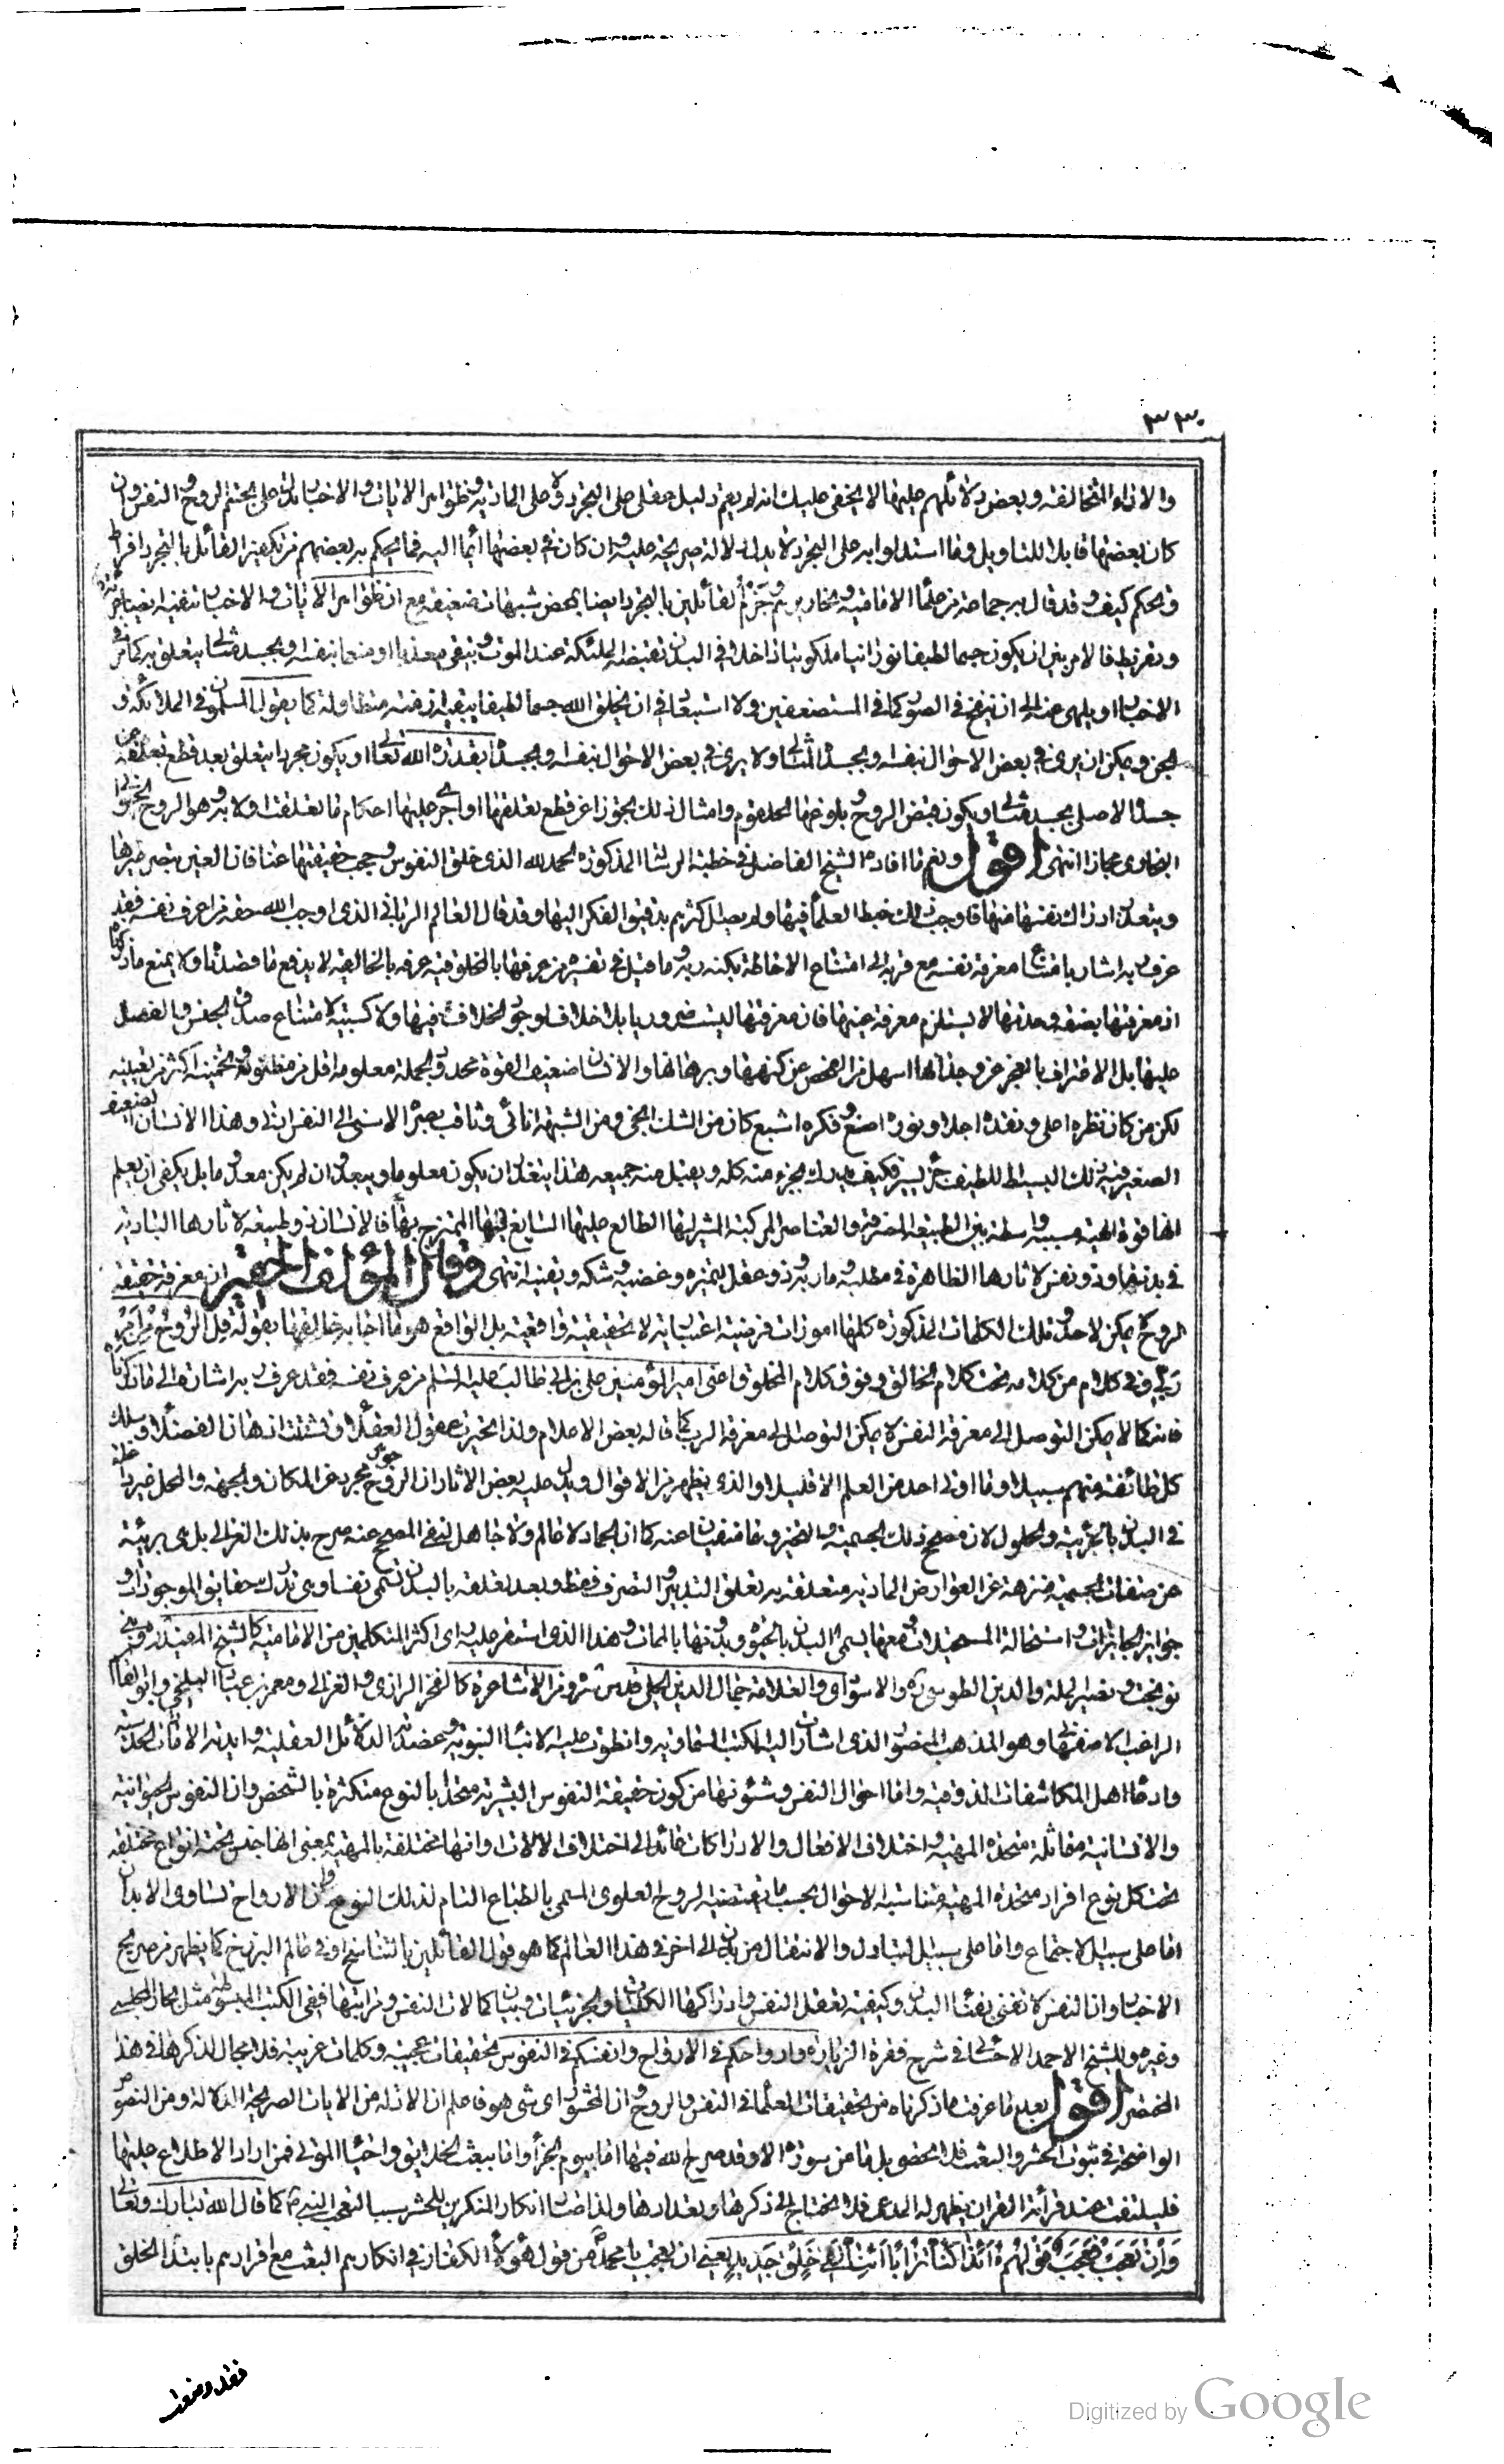 ٣٣٠
والاراء المتخالفة وبعض دلائلهم عليها لا يخفى عليك انه لم يقم دليل عقلى على التجرد ولا على المادية وظواهر الايات والاخبار تدل على تجسم الروح والنفس وان
كان بعضها قابلا للتاويل وما استدلوا به على التجرد لا يدل دلالة صريحة عليه وان كان فى بعضها ايماء اليه فما يحكم به بعضهم من تكفير القائل بالتجرد افراط
وتحكم كيف وقد قال به جماعة من علماء الامامية ونحاريرهم وجزم القائلين بالتجرد ايضا بمحض شبهات ضعيفة مع ان ظواهر الايات والاخبار تنفيه ايضا جرأة
وتفريط فالامر بين ان يكون جسما لطيفا نورانيا ملكوتيا داخلا فى البدن تقبضه الملئكة عند الموت وتبقى معذبا او منعما بنفسه او بجسد مثالى يتعلق به كما مر فى
الاخبار او يلهى عنه الى ان ينفخ فى الصور كما فى المستضعفين ولا استبعاد فى ان يخلق الله جسما لطيفا يبقيه ازمنة متطاولة كما يقول المسلمون فى الملائكة و
الجن ويمكن ان يرى فى بعض الاحوال بنفسه او بجسده المثالى ولا يرى فى بعض الاحوال بنفسه او بجسده بقدرة الله تعالى او يكون مجردا يتعلق بعد قطع تعلقه من
جسده الاصلى بجسد مثالى ويكون قبض الروح وبلوغها الحلقوم وامثال ذلك تجوزا عن قطع تعلقها او اجرى عليها احكام ما تعلقت اولا به وهو الروح الحيوانى
البخارى مجازا انتهى اقول ونعم ما افاده الشيخ الفاضل فى خطبة الرسالة المذكورة الحمد لله الذى خلق النفوس وحجب حقيقتها عنا فان العين تبصر غيرها
ويتعذر ادراك نفسها منها فاوجب ذلك خبط العلماء فيها ولم يصل اكثرهم بدقيق الفكر اليها وقد قال العالم الربانى الذى اوجب الله حقه من عرف نفسه فقد
عرف ربه اشار بامتناع معرفة نفسه مع قربه الى امتناع الاحاطة بكنه ربه وما قيل فى تفسيره من عرفها بالمخلوقية عرفه بالخالقية لا يدفع ما قصدناه ولا يمنع ما ذكرناه
اذ معرفتها بصفة حدثها لا يستلزم معرفة عينها فان معرفتها ليست ضرورية بلا خلاف لوجود الخلاف فيها ولا كسبية لامتناع صدق الجنس والفصل
عليها بل الاعتراف بالعجز عن وجدانها اسهل من الفحص عن كنهها وبرهانها والانسان ضعيف القوة محدود الجملة معلومه اقل من مظنونه وتخمينه اكثر من يقينه
لكن من كان نظره اعلى ونقده اجلى ونوره اصنع وفكره اشبع كان من الشك انجى ومن الشبهة انأى وثاقب بصره الاسنى الى النفس ادنى وهذا الانسان الضعيف
الصغير فيه ذلك البسيط اللطيف جزء يسير فكيف يدرك بجزء منه كله ويقبل منه جميعه هذا يتعذر ان يكون معلوما ويبعد وان لم يكن معدوما بل يكفى ان يعلم
انها قوة الهية مسببة واسطة بين الطبيعة المصرفة والعناصر المركبة المثير لها الطالع عليها السايغ فيها الممتزج بها فالانسان ذو طبيعة لاثارها البادية
فى بدنه او ذو نفس لاثارها الظاهرة فى مطلبه وماربه وذو عقل لتميزه وغضبه وشكه ويقينه انتهى وقال المؤلف الحقير ان معرفة حقيقة
الروح لا يمكن لاحد وتلك الكلمات المذكورة كلها امورات فرضية اعتبارية لا تحقيقية واقعية بل الواقع هو ما اجاب خالقها بقوله قل الروح من امر
ربى وفى كلام من كلامه تحت كلام الخالق وفوق كلام المخلوق اعنى امير المؤمنين على بن ابى طالب عليه السلم من عرف نفسه فقد عرف ربه اشارة الى ما ذكرناه
فانه كما لا يمكن التوصل الى معرفة النفس لا يمكن التوصل الى معرفة الرب كما قاله بعض الاعلام ولذا تحيرت عقول العقلاء وتشتت اذهان الفضلاء وسلك
كل طائفة منهم سبيلا وما اوتى احد من العلم الا قليلا والذى يظهر من الاقوال ويدل عليه بعض الاثار ان الروح جوهر مجرد عن المكان والجهة والمحل غير داخلة
فى البدن بالجزئية والحلول لان مصحح ذلك الجسمية والتحيز وهما منفيان عنه كما ان الجماد لا عالم ولا جاهل لنفى المصحح عنه صرح بذلك الغزالى بل هى بريئة
عن صفات الجسمية منزهة عن العوارض المادية متعلقة به تعلق التدبير والتصرف فقط وبعد تعلقه بالبدن تسمى نفسا وهى تدرك حقايق الموجودات و
جواز الجايزات واستحالة المستحيلات ومعها يسمى البدن بالحيوة وبدونها بالممات وهذا الذى استقر عليه راى اكثر المتكلمين من الامامية كالشيخ المفيد ره وبنى
نوبخت ونصير الملة والدين الطوسى ره والاسوارى والعلامة جمال الدين الحلى قدس سره ومن الاشاعرة كالفخر الرازى والغزالى ومعمر بن عباد البلخى وابو القاسم
الراغب الاصفهانى وهو المذهب المنصور الذى اشارت اليه الكتب السماوية وانطوت عليه الانباء النبوية وعضدته الدلائل العقلية وايدته الامارات الحدسية
وادعاء اهل المكاشفات الذوقية واما احوال النفس وشئونها من كون حقيقة النفوس البشرية متحدة بالنوع متكثرة بالشخص وان النفوس الحيوانية
والانسانية متماثلة متحدة المهية واختلاف الافعال والادراكات عائد الى اختلاف الالات وانها مختلفة بالمهية بمعنى انها جنس تحته انواع مختلفة
تحت كل نوع افراد متحدة المهية متناسبة الاحوال بحسب ما تقتضيه الروح العلوى المسمى بالطباع التام لذلك النوع وان الارواح تساوى الابدان
اما على سبيل الاجتماع واما على سبيل التبادل والانتقال من بدن الى اخر فى هذا العالم كما هو قول القائلين بالتناسخ او فى عالم البرزخ كما يظهر من صريح
الاخبار وان النفس لا تفنى بفناء البدن وكيفية تعقل النفس وادراكها الكليات والجزئيات وبيان كمالات النفس ومراتبها ففى الكتب المبسوطة مثل بحار المجلسى
وغيره وللشيخ الاحمد الاحسائى فى شرح فقرة الزيارة وارواحكم فى الارواح وانفسكم فى النفوس تحقيقات عجيبة وكلمات غريبة فلا مجال لذكرها فى هذا
المختصر اقول بعد ما عرفت ما ذكرناه من تحقيقات العلماء فى النفس والروح وان المحشور اى شى هو فاعلم ان الادلة من الايات الصريحة الدلالة ومن النصوص
الواضحة فى ثبوت الحشر والبعث فلا تحصى بل ما من سورة الا وقد صرح الله فيها اما بيوم الجزاء واما ببعث الخلايق واحياء الموتى فمن اراد الاطلاع عليها
فليلتفت عند قرائة القران يظهر له المدعى فلا نحتاج الى ذكرها وتعدادها ولذا صار انكار المنكرين للحشر سببا لتعجب النبى ص كما قال الله تبارك وتعالى
وَاِنْ تَعْجَبْ فَعَجَبٌ قَوْلُهُمْ اَئِذَا كُنَّا تُرَابًا اَئِنَّا لَفِى خَلْقٍ جَدِيدٍ يعنى ان تعجب يا محمد ص من قول هؤلاء الكفار فى انكارهم البعث مع اقرارهم بابتداء الخلق
Digitized by Google